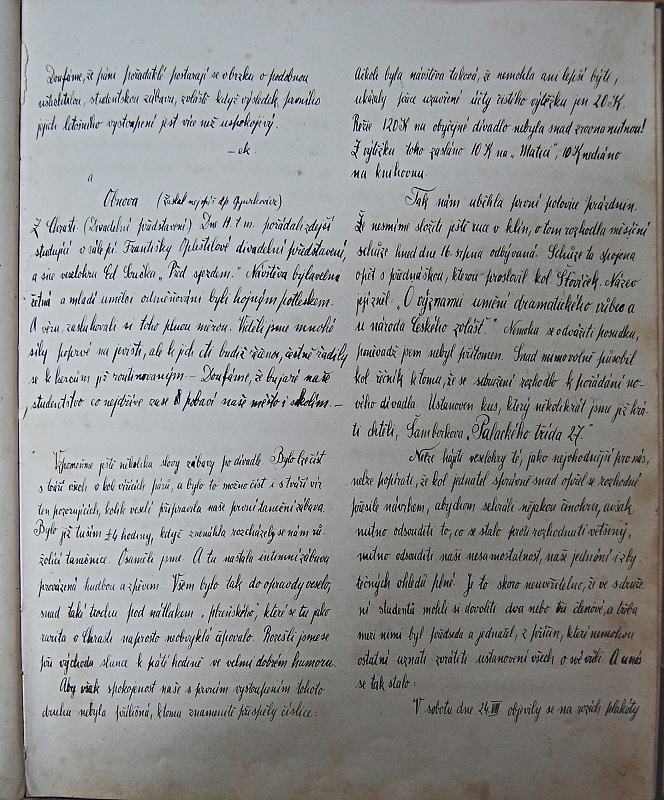 Doufáme, že páni pořadatelé postarají se v brzku o podobnou
ušlechtilou, studentskou zábavu, zvláště když výsledek prvního
jejich letošního vystoupení jest více než uspokojivý.
– ek.
a
Obnova. (zaslal nejspíš dp.
Z Chrasti. (Divadelní představení) Dne 11. t. m. pořádali zdejší
studující v sále pí Františky Opletilové divadelní představení,
a sice veselohru "Před sjezdem." Návštěva byla velmi
četná a mladí umělci odměňováni byli hojným potleskem.
A věru, zasluhovali si toho plnou měrou. Viděli jsme mnohé
síly poprvé na jevišti, ale k jich cti budiž řčeno, čestně řadily
se k hercům již routinovaným – Doufáme, že bujaré naše
studentstvo co nejdříve zase pobaví naše město i okolím. –
Vzpomeňme ještě několika slovy zábavy po divadle. Bylo lze číst
s tváří všech o kol vířících párů, a bylo to možno číst i s tváří víz
ten pozorujících, kolik veselí připravila naše první taneční zábava.
Bylo již tuším 4 hodiny, když znenáhla rozcházely se nám rů-
žolící tanečnice. Osaměli jsme. A tu nastala intimní zábava
provázená hudbou a zpěvem. Všem bylo tak do opravdy veselo,
snad také trochu pod nátlakem "plzeňského", které se tu jako
rarita v Chrasti naprosto neobvyklá čepovalo. Rozešli jsme se
při východu slunce k páté hodině ve velmi dobrém humoru.
Aby však spokojenost naše s prvním vystoupením tohoto
druhu nebyla přílišná, k tomu znamenitě přispěly číslice:
Ačkoli byla návštěva taková, že nemohla ani lepší býti,
ukázaly přece uzavřené účty čistého výtěžku jen 20 K.
Režie 120 K na obyčejné divadlo nebyla snad zrovna nutnou!
Z výtěžku toho zasláno 10 K na "Matici", 10 K necháno
na knihovnu.
Tak nám uběhla první polovice prázdnin.
Že nesmíme složiti ještě ruce v klín, o tom rozhodla měsíční
schůze hned dne 16. srpna odbývaná. Schůze ta spojena
opět s přednáškou, kterou proslovil kol. Šťovíček. Název
její zněl: "O významu umění dramatického vůbec a
u národa českého zvlášť." Nemohu se odvážiti posudku,
poněvadž jsem nebyl přítomen. Snad mimovolně působil
kol. řečník k tomu, že se sdružení rozhodlo k pořádání no-
vého divadla. Ustanoven kus, který několikrát jsme již hrá-
ti chtěli, Šamberkova "Palackého třída 27."
Nelze hájiti veselohry té, jako nejvhodnější pro nás,
nelze popírati, že kol. jednatel správně snad opřel se rozhodně
přešilo návrhem, abychom sehráli nějakou činohru, avšak
nutno odsouditi to, co se stalo proti rozhodnutí většiny,
nutno odsouditi naši nesamostatnost, naše jednání i zby-
tečných ohledů plné. Je to skoro neuvěřitelno, že ve sdruže-
ní studentů mohli si dovoliti dva nebo tři členové, a třeba
mezi nimi byl předseda a jednatel, z příčin, které nemohou
ostatní uznati zvrátiti ustanovení všech o své vůli. A u nás
se tak stalo:
V sobotu dne 24. VIII objevily se na rozích plakáty